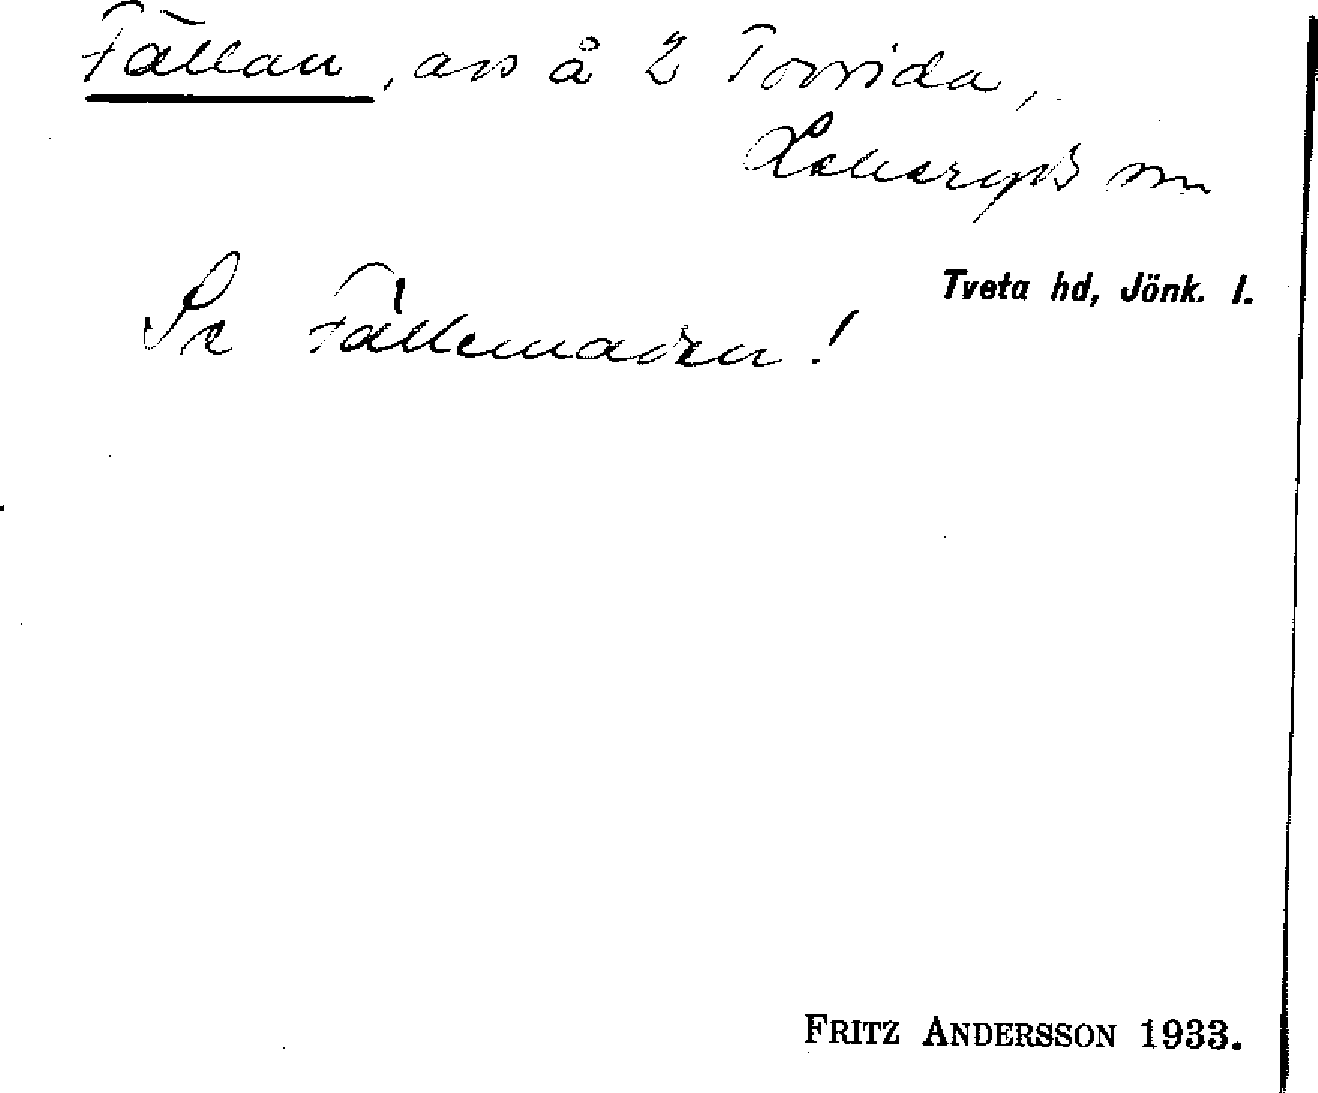 Fällan, avs å 2 Torvida,
Lekeryds sn
Tveta hd, Jönk. l.
Se Fällemaden!
FRITZ ANDERSSON 1933.